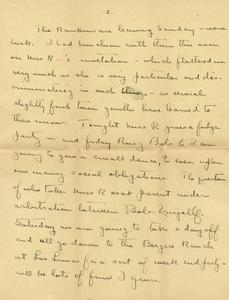 3.
The Rankins are leaving Sunday – worse
luck. I had luncheon with them this noon
on Mrs R–'s invitation – which flattered me
very much as she is very particular and dis-
criminating in such things – as several
slightly fresh town youths have learned to
their sorrow. Tonight Mrs R gives a fudge
party – and Friday Bob & I are
going to give a small dance, to even up on
our many social obligations. The question
of who takes Mrs R is at present under
arbitration between Bob & myself.
Saturday we are going to take a day off
and all go down to the Bergere Ranch
at Los Lunas for a sort of week end party –
will be lots of fun I guess.